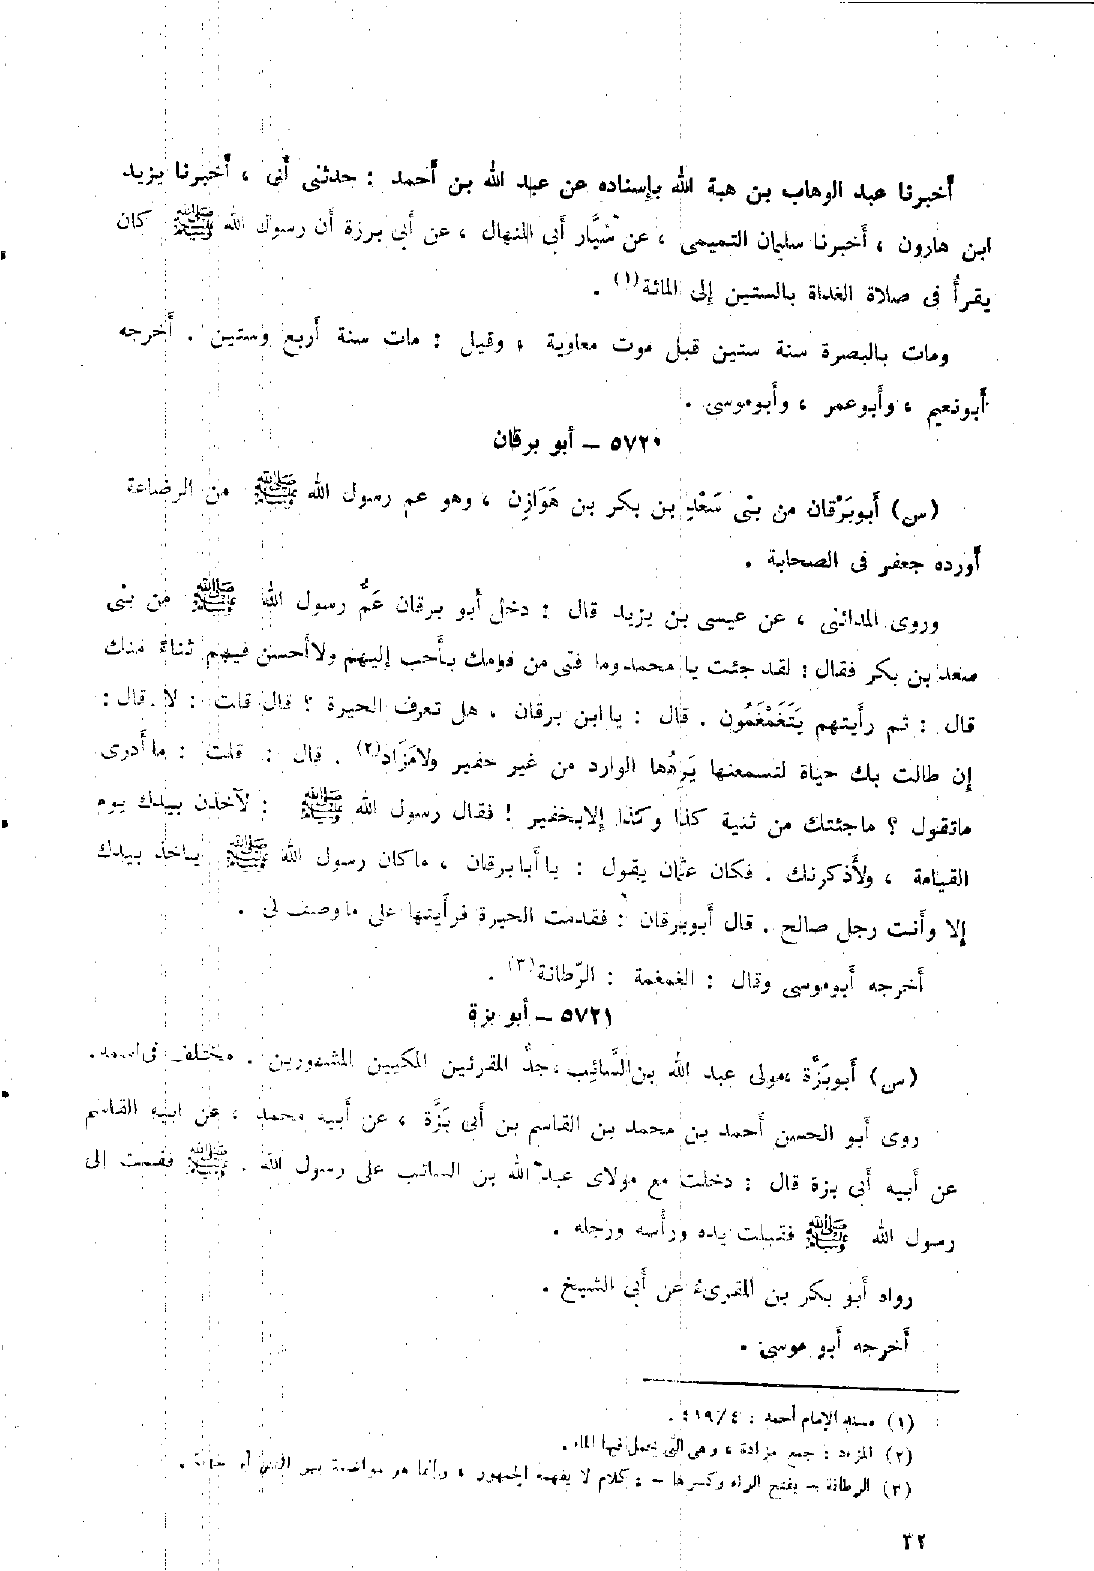 أخبرنا عبد الوهاب بن هبة الله بإسناده عن عبد الله بن أحمد : حدثنى أبى ، أخبرنا يزيد
ابن هارون ، أخبرنا سليمان التميمى ، عن سَيَّار أبى المنهال ، عن أبى برزة أن رسول الله ﷺ كان
يقرأ فى صلاة الغداة بالستين إلى المائة(١) .
ومات بالبصرة سنة ستين قبل موت معاوية ، وقيل : مات سنة أربع وستين . أخرجه
أبونعيم ، وأبوعمر ، وأبوموسى .
٥٧٢٠ – أبو برقان
(س) أبوبَرْقان من بنى سَعْد بن بكر بن هَوَازِن ، وهو عم رسول الله ﷺ من الرضاعة
أورده جعفر فى الصحابة .
وروى المدائنى ، عن عيسى بن يزيد قال : دخل أبو برقان عَمُّ رسول الله ﷺ من بنى
سعد بن بكر فقال : لقد جئت يا محمد وما فتى من قومك بأحب إليهم ولا أحسن فيهم ثناءً منك
قال : ثم رأيتهم يَتَغَمْغَمُون . قال : يا ابن برقان ، هل تعرف الحيرة ؟ قال قلت : لا . قال :
إن طالت بك حياة لتسمعنها يَرِدُها الوارد من غير خفير ولامَزَاد(٢) . قال : قلت : ما أدرى
ماتقول ؟ ماجئتك من ثنية كذا وكذا إلابخفير ! فقال رسول الله ﷺ : لآخذن بيدك يوم
القيامة ، ولأذكرنك . فكان عثمان يقول : يا أبابرقان ، ماكان رسول الله ﷺ ياخذ بيدك
إلا وأنت رجل صالح . قال أبوبرقان : فقدمت الحيرة فرأيتها على ماوصف لى .
أخرجه أبوموسى وقال : الغمغمة : الرّطانة(٣) .
٥٧٢١ – أبو بزة
(س) أبوبَزَّة ،مولى عبد الله بن السَّائِب ، جدُّ المقرئين المكيين المشهورين . مختلف فى اسمه.
روى أبو الحسن أحمد بن محمد بن القاسم بن أبى بَزَّة ، عن أبيه محمد ، عن ابيه القاسم
عن أبيه أبى بزة قال : دخلت مع مولاى عبد الله بن السائب على رسول الله . ﷺ فقمت إلى
رسول الله ﷺ فقبلت يده ورأسه ورجله .
رواه أبو بكر بن المقرىء عن أبى الشيخ .
أخرجه أبو موسى .
(١) مسند الإمام أحمد : ٤/٤١٩ .
(٢) المزاد : جمع مزادة ، وهى التى يحمل فيها الماء .
(٣) الرطانة – بفتح الراء وكسرها – : كلام لا يفهمه الجمهور ، وإنما هو مواضعة بين اثنين أو جماعة .
٣٢